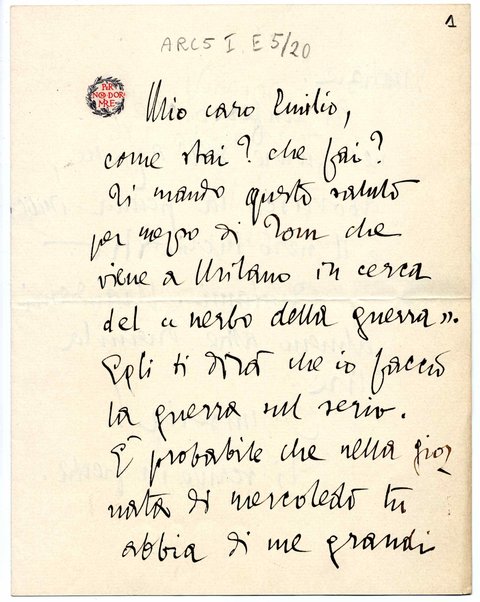 1
ARC5 I E 5/20
PER
NON DOR
MIRE
Mio caro Emilio,
come stai? che fai?
Ti mando questo saluto
per mezzo di Tom che
viene a Milano in cerca
del « nerbo della guerra ».
Egli ti dirà che io faccio
la guerra sul serio.
È probabile che nella gior
nata di mercoledì tu
abbia di me grandi